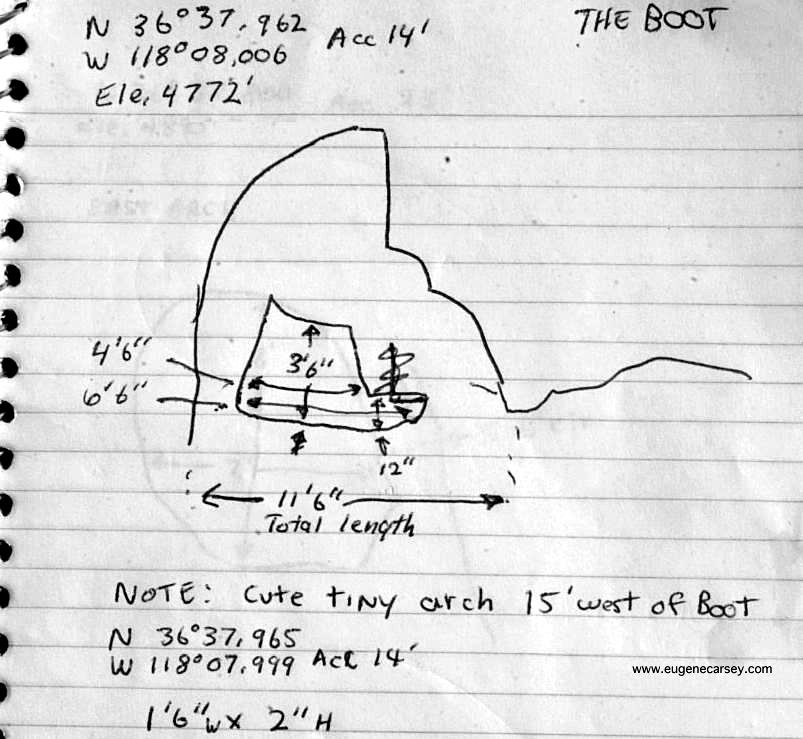 THE BOOT
N 36°37,962 Acc 14'
W 118°08,006
Ele, 4772'
4'6"
6'6"
3'6"
12"
11'6"
Total length
NOTE: Cute tiny arch 15' west of Boot
N 36°37,965
W 118°07,999 Acc 14'
www.eugenecarsey.com
1'6"W x 2"H